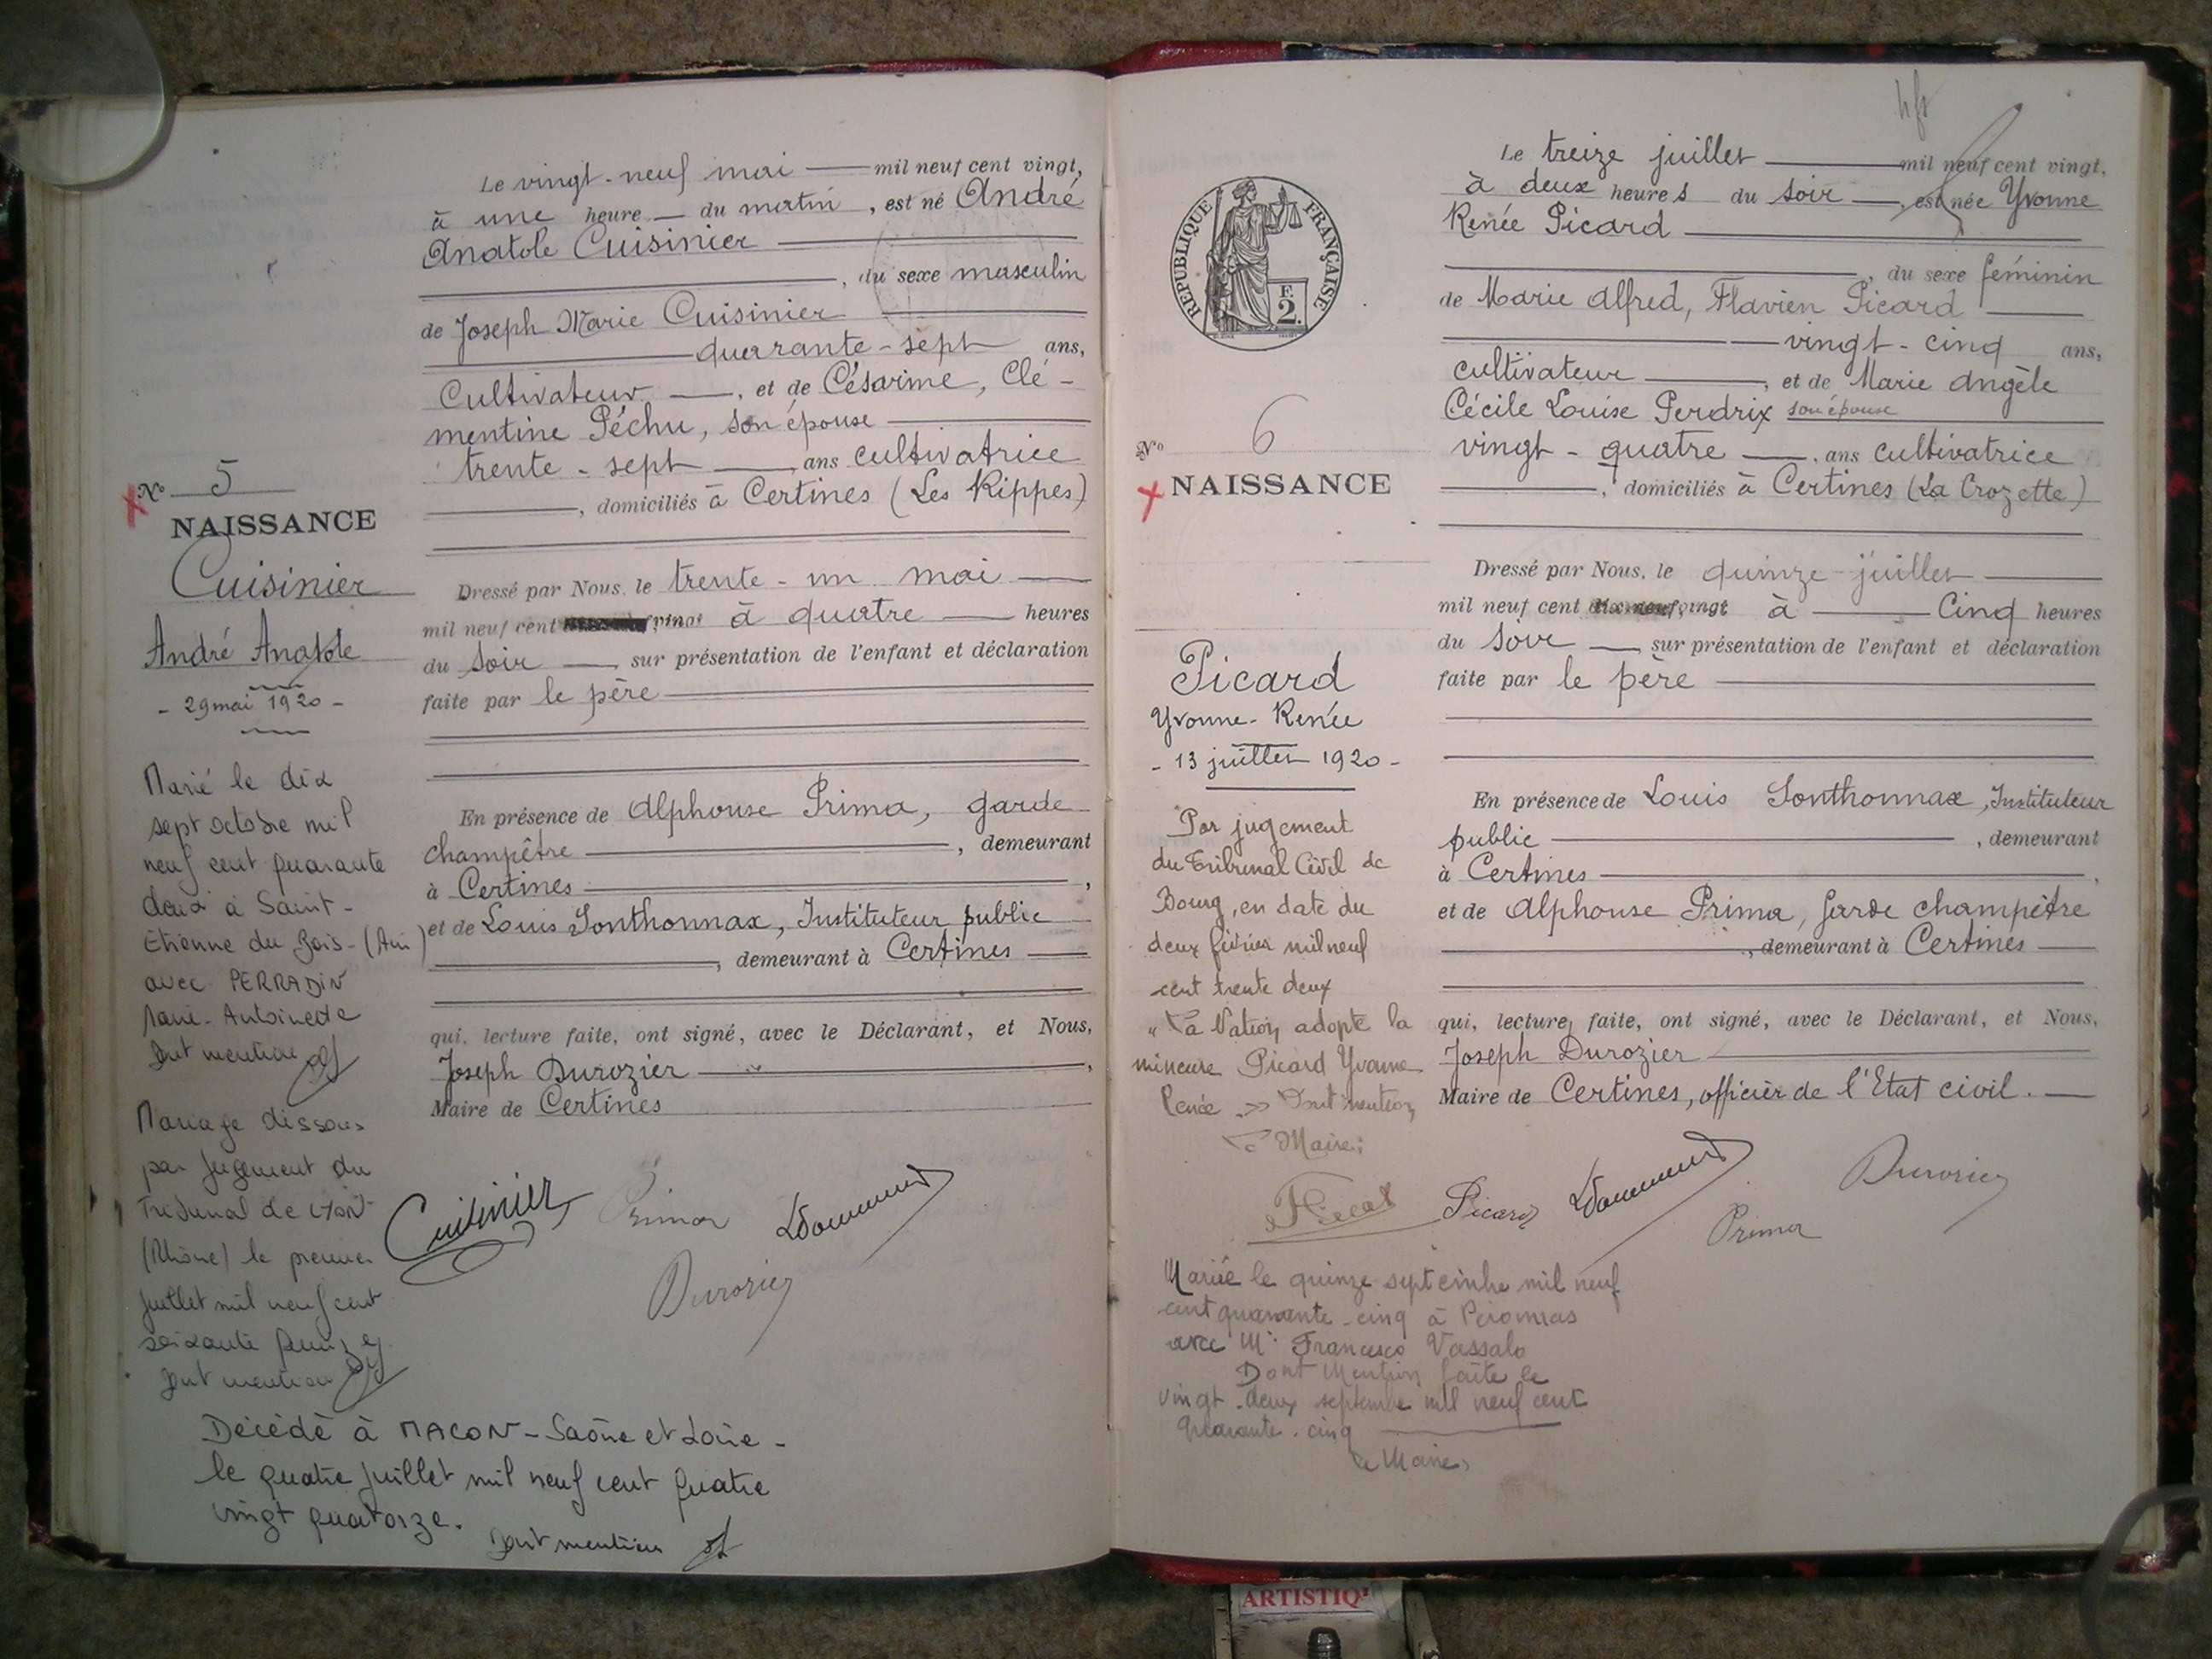 Le vingt-neuf mai mil neuf cent vingt,
à une heure du matin, est né André
Anatole Cuisinier
, du sexe masculin
de Joseph Marie Cuisinier
quarante-sept ans,
Cultivateur, et de Césarine, Clé-
mentine Péchu, son épouse
trente-sept ans cultivatrice
, domiciliés à Certines (Les Rippes)
No 5
NAISSANCE
Cuisinier
André Anatole
- 29 mai 1920 -
Dressé par Nous, le trente-un mai
mil neuf cent vingt à quatre heures
du soir, sur présentation de l'enfant et déclaration
faite par le père
En présence de Alphonse Prima, garde
champêtre, demeurant
à Certines,
et de Louis Sonthonnax, Instituteur public
, demeurant à Certines
qui, lecture faite, ont signé, avec le Déclarant, et Nous,
Joseph Durozier,
Maire de Certines
Marié le dix
sept octobre mil
neuf cent quarante
deux à Saint-
Etienne du Bois-(Ain)
avec PERRADIN
Marie-Antoinette
Dont mention
Mariage dissous
par jugement du
Tribunal de LYON
(Rhône) le premier
juillet mil neuf cent
soixante quinze
Dont mention
Cuisinier
Prima
Durozier
Décédé à MACON-Saône et Loire-
le quatre juillet mil neuf cent quatre
vingt quatorze.
Dont mention
Le treize juillet mil neuf cent vingt,
à deux heures du soir, est née Yvonne
Renée Picard
, du sexe féminin
de Marie Alfred, Flavien Picard
vingt-cinq ans,
cultivateur, et de Marie Angèle
Cécile Louise Perdrix son épouse
vingt-quatre, ans cultivatrice
, domiciliés à Certines (La Crozette)
REPUBLIQUE FRANÇAISE
F.
2.
No 6
NAISSANCE
Picard
Yvonne-Renée
- 13 juillet 1920 -
Dressé par Nous, le quinze juillet
mil neuf cent vingt à Cinq heures
du soir, sur présentation de l'enfant et déclaration
faite par le père
En présence de Louis Sonthonnax, Instituteur
public, demeurant
à Certines,
et de Alphonse Prima, garde champêtre
, demeurant à Certines
qui, lecture faite, ont signé, avec le Déclarant, et Nous,
Joseph Durozier
Maire de Certines, officier de l'Etat civil.
Par jugement
du Tribunal Civil de
Bourg, en date du
deux février mil neuf
cent trente deux
"La Nation adopte la
mineure Picard Yvonne
Renée." Dont mention
Le Maire:
Picard
Prima
Durozier
Mariée le quinze septembre mil neuf
cent quarante-cinq à Péronnas
avec Mr Francesco Vassalo
Dont Mention faite le
vingt-deux septembre mil neuf cent
quarante-cinq
Le Maire,
ARTISTIQ